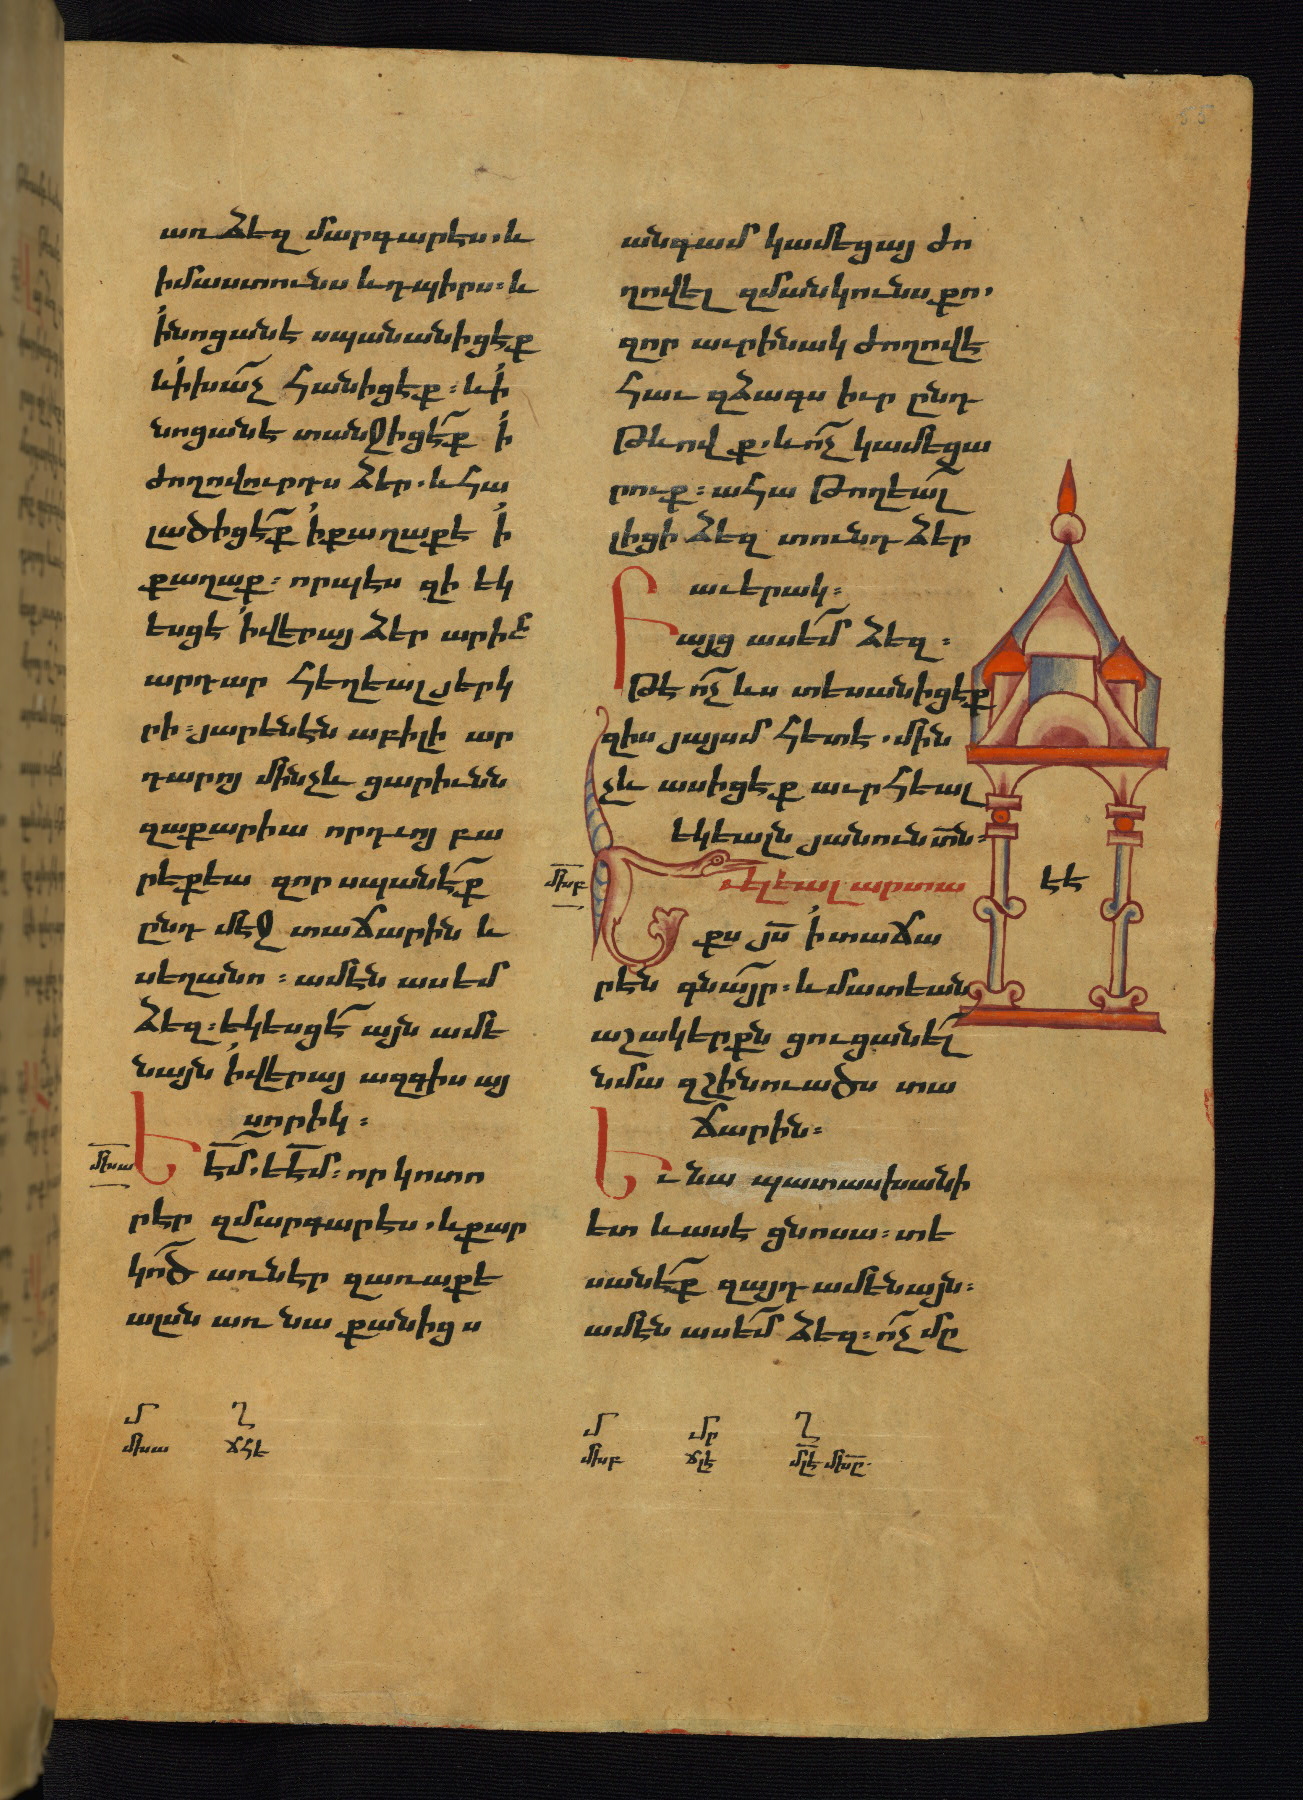 առ ձեզ մարգարէս, և
իմաստունս և դպիրս։ և
ի նոցանէ սպանանիցէք
և ի խաչ հանիցէք։ և ի
նոցանէ տանջիցէք ի
ժողովուրդս ձեր. և հա
լածիցէք ի քաղաքէ ի
քաղաք։ որպէս զի եկ
եսցէ ի վերայ ձեր արիւն
արդար հեղեալ յերկ
րի։ յարենէն աբիլի ար
դարոյ մինչև ցարիւնն
զաքարիա որդւոյ բա
րեքեա զոր սպանէք
ընդ մէջ տաճարին և
սեղանո։ ամէն ասեմ
ձեզ։ եկեսցէ այն ամե
նայն ի վերայ ազգիս այ
սորիկ։
միսա
Եէմ, եէմ։ որ կոտո
րէր զմարգարէս, և քար
կոծ առնէր զառաքե
ալսն առ նա քանիցս
անգամ կամեցայ ժո
ղովել զմանկունս քո,
զոր աւրինակ ժողովէ
հաւ զձագս իւր ընդ
թևովք. և ոչ կամեցա
րուք։ ահա թողեալ
լիցի ձեզ տունդ ձեր
աւերակ։
Բայց ասեմ ձեզ։
թէ ոչ ևս տեսանիցէք
զիս յայսմ հետէ, մին
չև ասիցէք աւրհեալ
եկեալն յանուն տն։
միսբ
Ելեալ արտա
քս յս ի տաճա
րէն գնայր։ և մատեան
աշակերքն ցուցանել
նմա զշինուածս տա
ճարին։
Եւ նա պատասխանի
ետ և ասէ ցնոսա։ տե
սանէք զայդ ամենայն։
ամէն ասեմ ձեզ։ ոչ մը
ՀԷ
Մ Ղ
միսա ճհէ
Մ Մր Ղ
միսբ ճլէ մլէ միսը